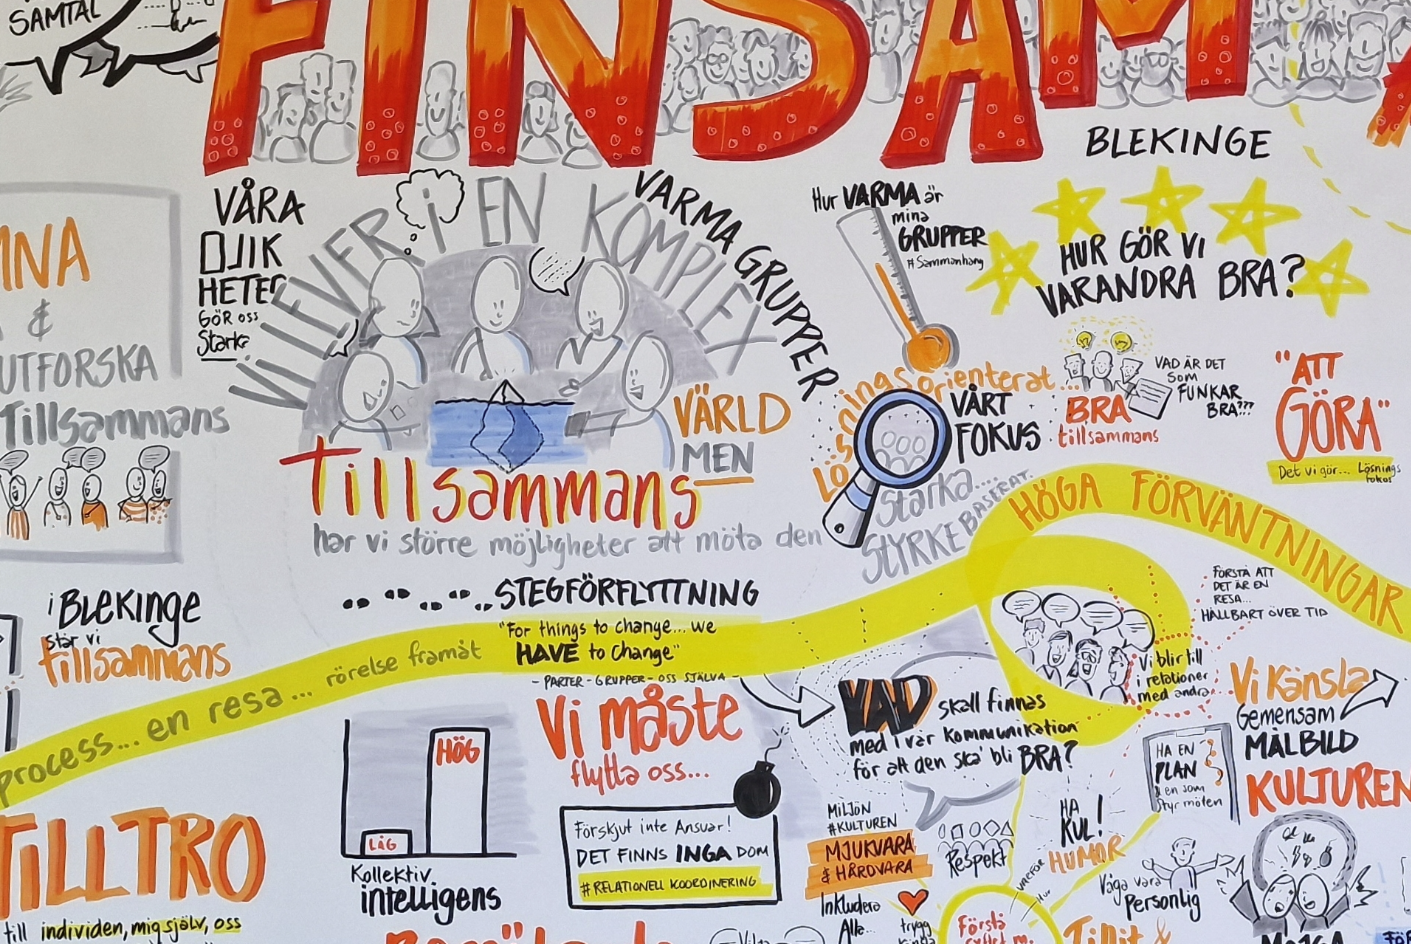 SAMTAL
FINSAM
BLEKINGE
VÅRA
OLIK
HETER
GÖR oss
Starka
VI LEVER i EN KOMPLEX
VÄRLD
MEN
Tillsammans
har vi större möjligheter att möta den
VARMA GRUPPER
Hur VARMA är
mina
GRUPPER
#Sammanhang
HUR GÖR VI
VARANDRA BRA?
UTFORSKA
Tillsammans
&
Lösningsorienterat...
VÅRT
FOKUS
Starka....
STYRKEBASERAT.
BRA
tillsammans
VAD ÄR DET
SOM
FUNKAR
BRA???
"ATT
GÖRA"
Det vi gör... Lösnings
fokus
HÖGA FÖRVÄNTNINGAR
i Blekinge
står vi
tillsammans
STEGFÖRFLYTTNING
"For things to change... we
HAVE to change"
- PARTER - GRUPPER - OSS SJÄLVA -
process... en resa... rörelse framåt
FÖRSTÅ ATT
DET ÄR EN
RESA...
HÅLLBART ÖVER TID
Vi blir till
i relationer
med andra
Vi Känsla
Gemensam
MÅLBILD
KULTUREN
HA EN
PLAN
& en som
Styr möten
Vi måste
flytta oss...
VAD skall finnas
med i vår kommunikation
för att den ska' bli BRA?
HÖG
LÅG
Kollektiv
intelligens
Förskjut inte Ansvar!
DET FINNS INGA DOM
#RELATIONELL KOORDINERING
MILJÖN
#KULTUREN
MJUKVARA
& HÅRDVARA
Inkludera
Alla...
Respekt
HA
KUL!
HUMOR
VARFÖR
Hur
Våga vara
Personlig
TILLTRO
till individen, mig själv, oss
trygg
Första
Tillit &